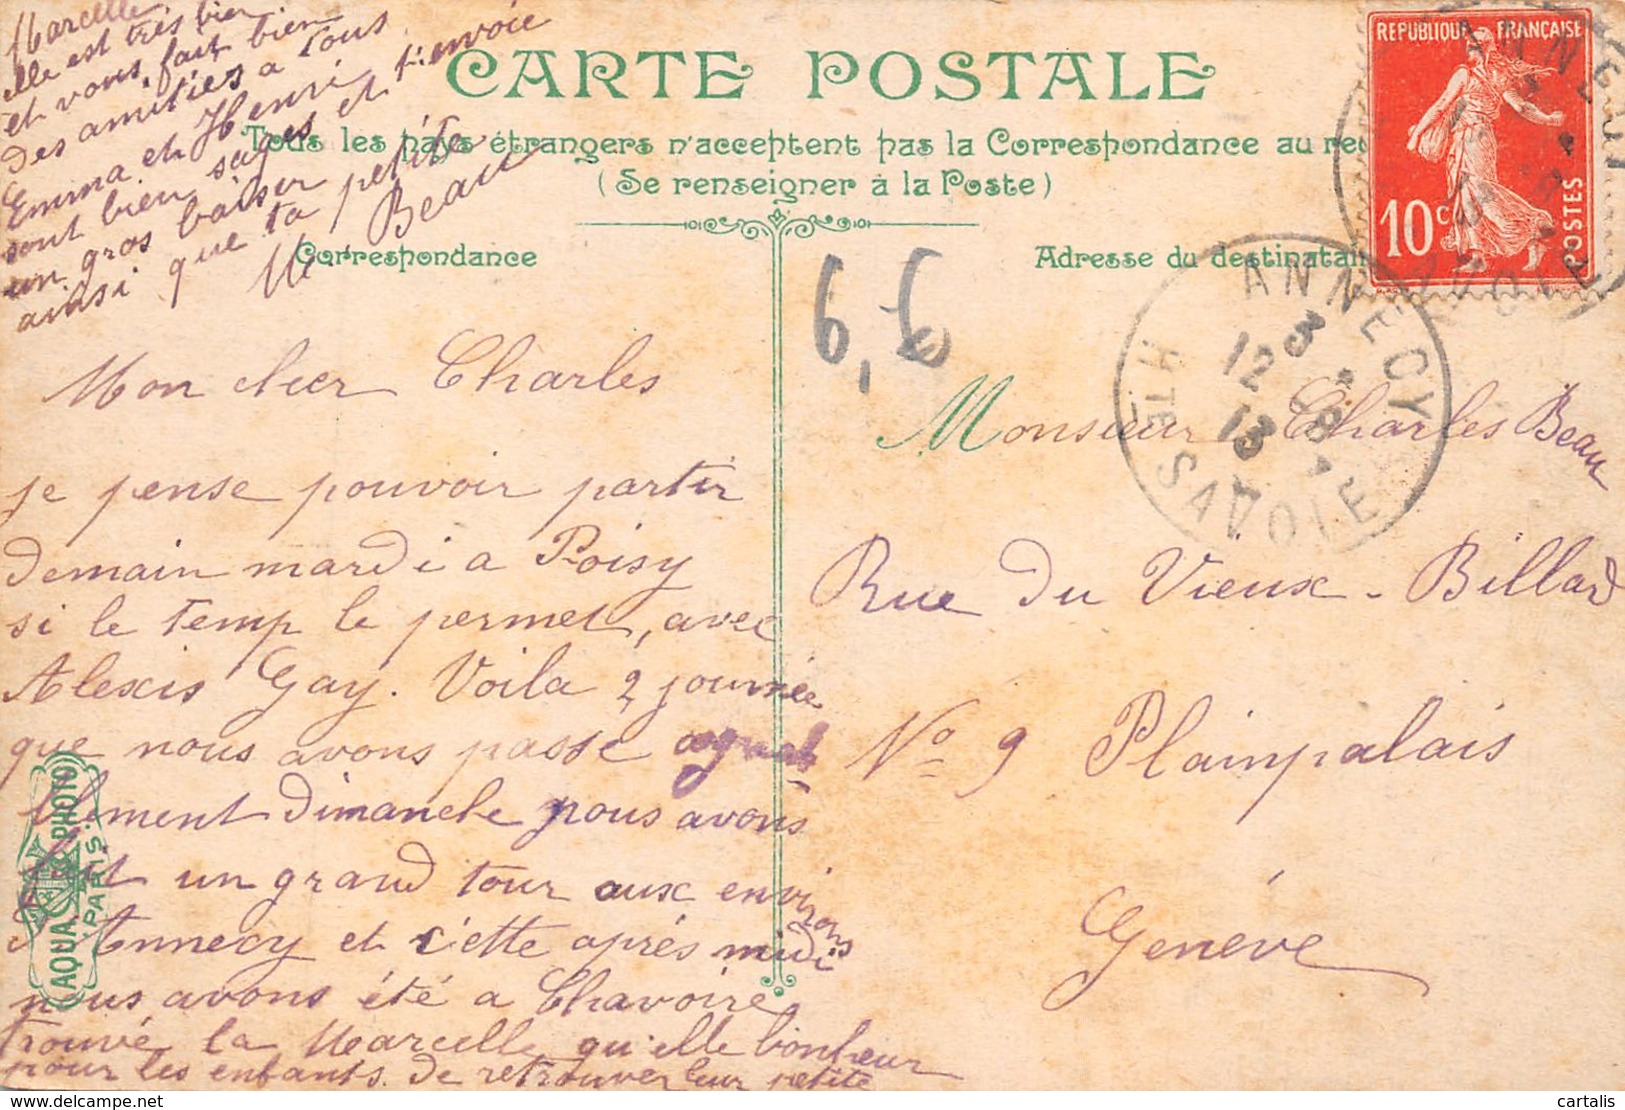 CARTE POSTALE
Tous les pays étrangers n'acceptent pas la Correspondance au rec
(Se renseigner à la Poste)
Correspondance
Adresse du destinatai
REPUBLIQUE FRANÇAISE
10c
POSTES
ANNECY
3
12 8
13
HTE SAVOIE
6,€
Mon cher Charles
je pense pouvoir partir
demain mardi a Poisy
si le temp le permet, avec
Alexis Gay. Voila 2 journée
que nous avons passé agreat
blement dimanche nous avons
fait un grand tour aux environs
d'Annecy et cette après midi
nous avons été a Chavoire
trouvé la Marcelle qu'elle bonheur
pour les enfants de retrouver leur petite
Marcelle
elle est très bien
et vous fait bien
des amitiés a tous
Emma et Henri
sont bien sages et t'envoie
un gros baiser
ainsi que ta petite
M Beau
Monsieur Charles Beau
Rue du Vieux-Billard
No 9 Plainpalais
Genève
AQUA PHOTO
PARIS
cartalis
delcampe.net